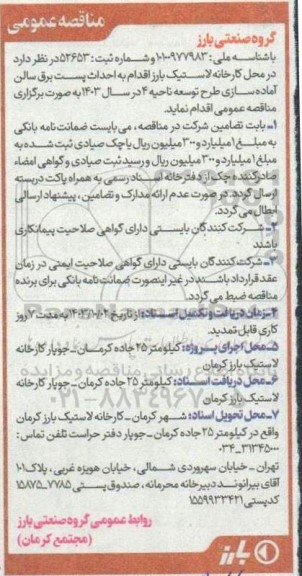 مناقصه عمومی
گروه صنعتی بارز
باشناسه ملی: ۱۰۱۰۰۹۷۷۹۸۳ و شماره ثبت: ۵۲۶۵۳ در نظر دارد
در محل کارخانه لاستیک بارز اقدام به احداث پست برق سالن
آماده سازی طرح توسعه ناحیه ۴ در سال ۱۴۰۳ به صورت برگزاری
مناقصه عمومی اقدام نماید.
۱- بابت تضامین شرکت در مناقصه، می بایست ضمانت نامه بانکی
به مبلغ ۱ میلیارد و ۳۰۰ میلیون ریال یا چک صیادی ثبت شده به
مبلغ ۱ میلیارد و ۳۰۰ میلیون ریال و رسید ثبت صیادی و گواهی امضاء
صادرکننده چک از دفترخانه اسناد رسمی به همراه پاکت دربسته
ارسال گردد. در صورت عدم ارائه مدارک و تضامین، پیشنهاد ارسالی
ابطال می گردد.
۲- شرکت کنندگان بایستی دارای گواهی صلاحیت پیمانکاری
باشند
۳- شرکت کنندگان بایستی دارای گواهی صلاحیت ایمنی در زمان
عقد قرارداد باشند در غیر اینصورت ضمانت نامه بانکی برای برنده
مناقصه ضبط می گردد.
۴- زمان دریافت و تکمیل اسناد: از تاریخ ۱۴۰۳/۱۰/۰۲ به مدت ۷ روز
کاری قابل تمدید.
۵- محل اجرای پروژه: کیلومتر ۲۵ جاده کرمان - جوپار کارخانه
لاستیک بارز کرمان
۶- محل دریافت اسناد: کیلومتر ۲۵ جاده کرمان - جوپار کارخانه
لاستیک بارز کرمان
۷- محل تحویل اسناد: شهر کرمان - کارخانه لاستیک بارز کرمان
واقع در کیلومتر ۲۵ جاده کرمان - جوپار دفتر حراست تلفن تماس:
۰۳۴-۳۱۳۴۵۰۰۰
تهران - خیابان سهروردی شمالی، خیابان هویزه غربی، پلاک ۱۰۱
آقای بیرانوند دبیرخانه محرمانه، صندوق پستی ۷۷۸۵-۱۵۸۷۵
کدپستی ۱۵۵۹۹۳۳۴۲۱
روابط عمومی گروه صنعتی بارز
(مجتمع کرمان)
بارز